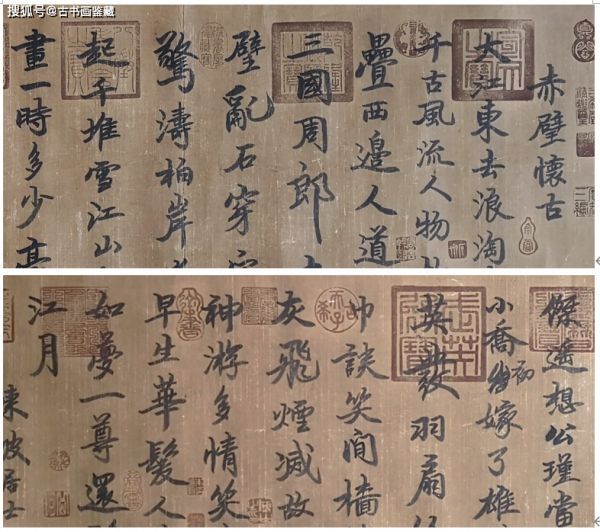 搜狐号@古书画鉴藏
赤壁懷古
大江東去浪淘
千古風流人物
疊西邊人道
三國周郎
壁亂石穿
驚濤拍岸
起千堆雪江山
畫一時多少
傑遙想公瑾當
小喬初嫁了雄
英發羽扇
巾談笑間檣
灰飛煙滅故
神游多情笑
早生華髮人
如夢一尊還
江月
東坡居士